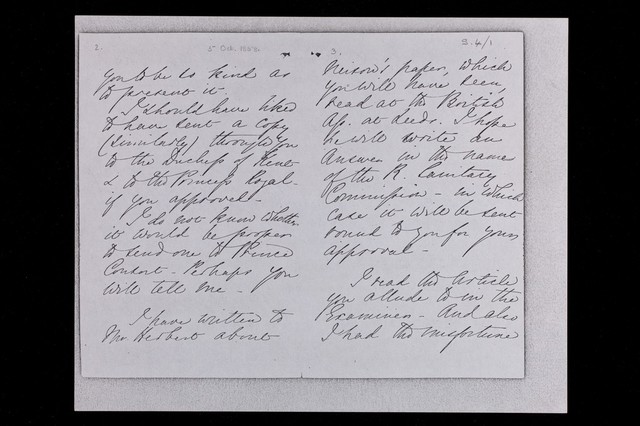 2.
5 Oct. 1858
3.
S. 4/1
you to be so kind as
to present it.
I should have liked
to have sent a copy
(similarly) through you
to the Duchess of Kent
& to the Princess Royal -
if you approved -
I do not know whether
it would be proper
to send one to Prince
Consort - Perhaps you
will tell me -
I have written to
Mr Herbert about
Neison's paper, which
you will have seen,
read at the British
Ass. at Leeds. I hope
he will write an
Answer in the name
of the R. Sanitary
Commission - in which
case it will be sent
round to you for your
approval -
I read the Article
you allude to in the
Examiner - And also
I had the misfortune